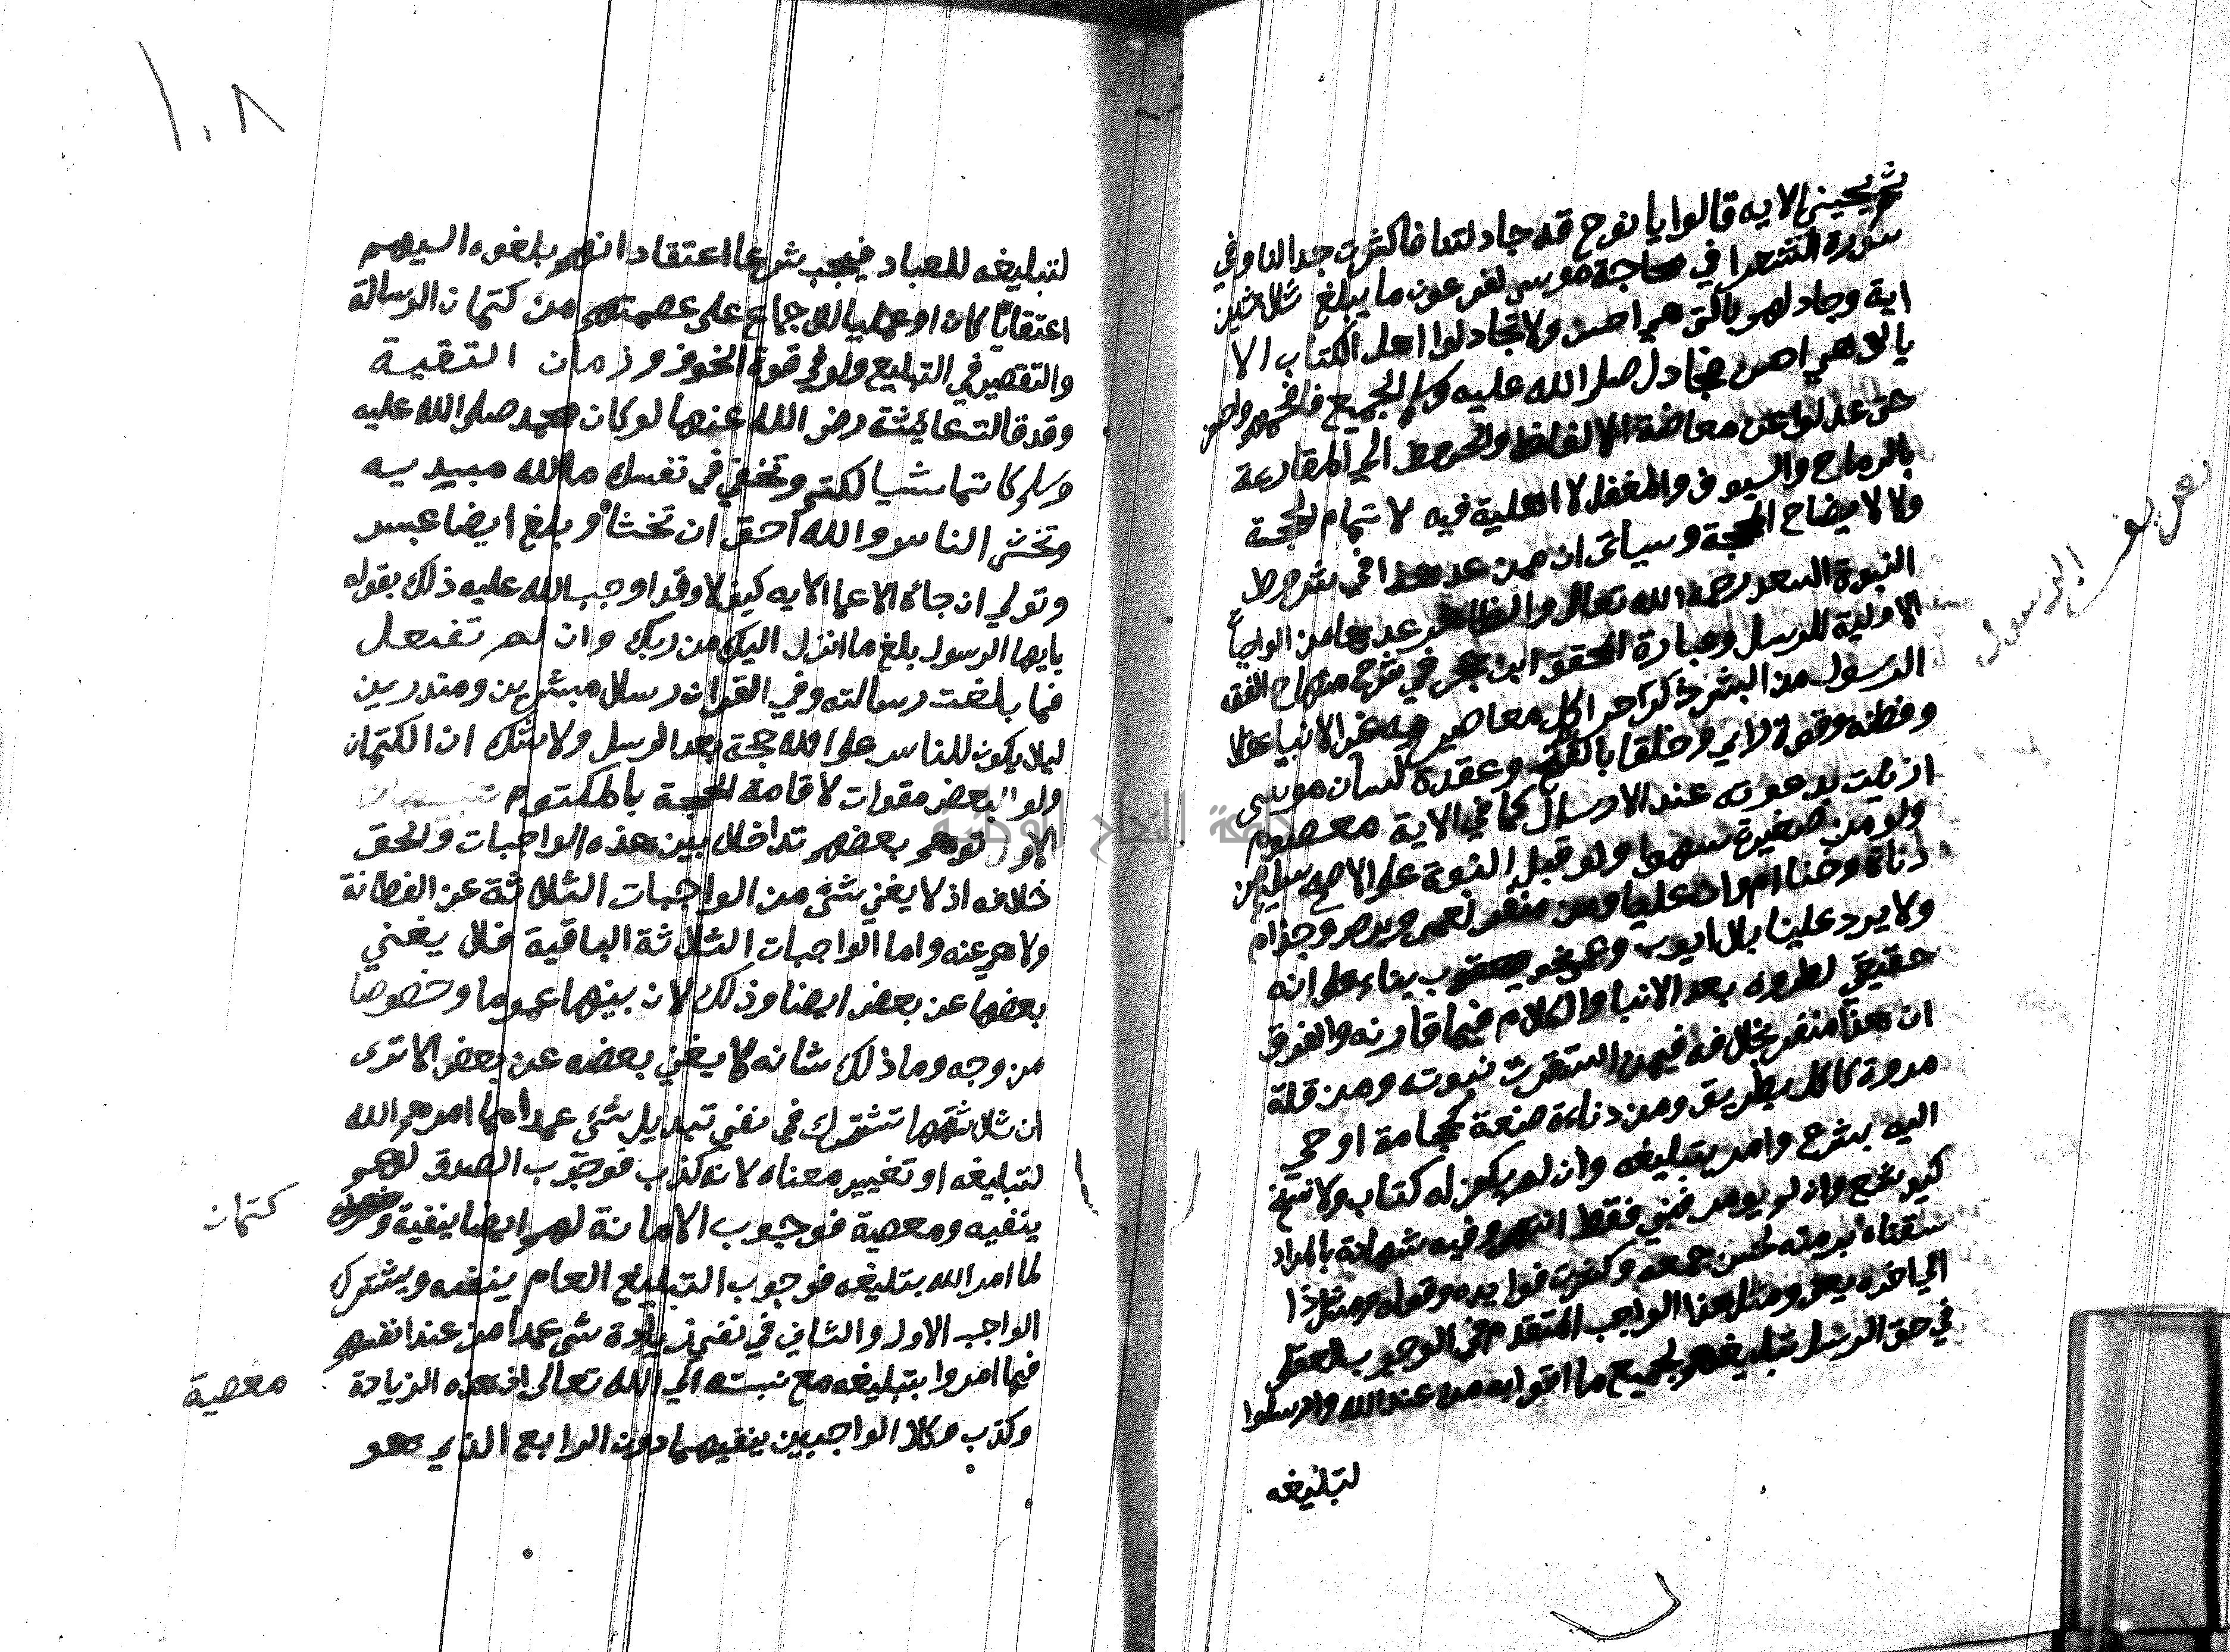 ثم يحييني الايه قالوا يا نوح قد جادلتنا فاكثرت جدالنا وفي
سورة الشعرا في محاجة موسى لفرعون ما يبلغ ثلاثين
اية وجادلهم بالتي هي احسن ولا تجادلوا اهل الكتاب الا
بالتي هي احسن فجادل صلى الله عليه وسلم الجميع فافحمهم
حتى عدلوا عن معارضة الالفاظ والحروف الى المقارعة
بالرماح والسيوف والمغفل لا اهلية فيه لاتمام الحجة
ولا لايضاح المحجة وسياتي ان ممن عد هذا في شروط
النبوة السعد رحمه الله تعالى والظاهر عدها من الواجبات
الاولية للرسل وعبارة المحقق ابن حجر في شرح منهاج الفقه
الرسول من البشر ذكر احر اكمل معاصريه غير الانبياء عقلا
وفطنة وقوة راي وخلقا بالفتح وعقدة لسان موسى
ازيلت بدعوته عند الارسال كما في الاية معصوم
ولو من صغيرة سهوا ولو قبل النبوة على الاصح سليم من
دناة وخنا ام وان عليا ومن منفر كعمى وبرص وجذام
ولا يرد علينا بلا ايوب وعمى نحو يعقوب بناء على انه
حقيقي لطروه بعد الانبا والكلام فيما قارنه والفرق
ان هذا منفر بخلافه فيمن استقرت نبوته ومن قلة
مروة كاكل بطريق ومن دناءة صنعة كحجامة اوحي
اليه بشرع وامر بتبليغه وان لم يكن له كتاب ولا نسخ
كيوشع وان لم يومر فنبي فقط انتهى وفيه شهادة بالمراد
سقناه برمته لحسن جمعه وكثرت فوايده وقوله ومثل ذا
الى اخره يعني ومثل هذا الواجب المتقدم في الوجوب العقلي
في حق الرسل تبليغهم لجميع ما اتوا به من عند الله وارسلوا
لتبليغه
تعريف الرسول
١٠٨
لتبليغه للعباد فيجب شرعا اعتقاد انهم بلغوه اليهم
اعتقاديا كان او عمليا للاجماع على عصمتهم من كتمان الرسالة
والتقصير في التبليغ ولو في قوة الخوف وزمان التقية
وقد قالت عائشة رضى الله عنها لو كان محمد صلى الله عليه
وسلم كاتما شيا لكتم وتخفي في نفسك ما الله مبديه
وتخشى الناس والله احق ان تخشاه وبلغ ايضا عبس
وتولى ان جاه الاعما الايه كيف لا وقد اوجب الله عليه ذلك بقوله
يايها الرسول بلغ ما انزل اليك من ربك وان لم تفعل
فما بلغت رسالته وفي القران رسلا مبشرين ومنذرين
ليلا يكون للناس على الله حجة بعد الرسل ولا شك ان الكتمان
ولو البعض مفوات لاقامة الحجة بالمكتوم تنبيهات
الاول توهم بعضهم تداخلا بين هذه الواجبات والحق
خلافه اذ لا يغني شئ من الواجبات الثلاثة عن الفطانة
ولا هي عنه واما الواجبات الثلاثة الباقية فلا يغني
بعضها عن بعض ايضا وذلك لان بينها عموما وخصوصا
من وجه وما ذلك شانه لا يغني بعضه عن بعض الا ترى
ان ثلاثتها تشترك في نفي تبديل شئ عمدا مما امرهم الله
لتبليغه او تغيير معناه لانه كذب فوجوب الصدق لهم
ينفيه ومعصية فوجوب الامانة لهم ايضا ينفيه و
كتمان
لما امر الله بتليغه فوجوب التبليغ العام ينفيه ويشترك
الواجب الاول والثاني في نفي زيادة شى عمدا من عند انفسهم
فيما امروا بتبليغه مع نسبته الى الله تعالى اذ هذه الزيادة
معصية
وكذب وكلا الواجبين ينفيهما دون الرابع الذي هو